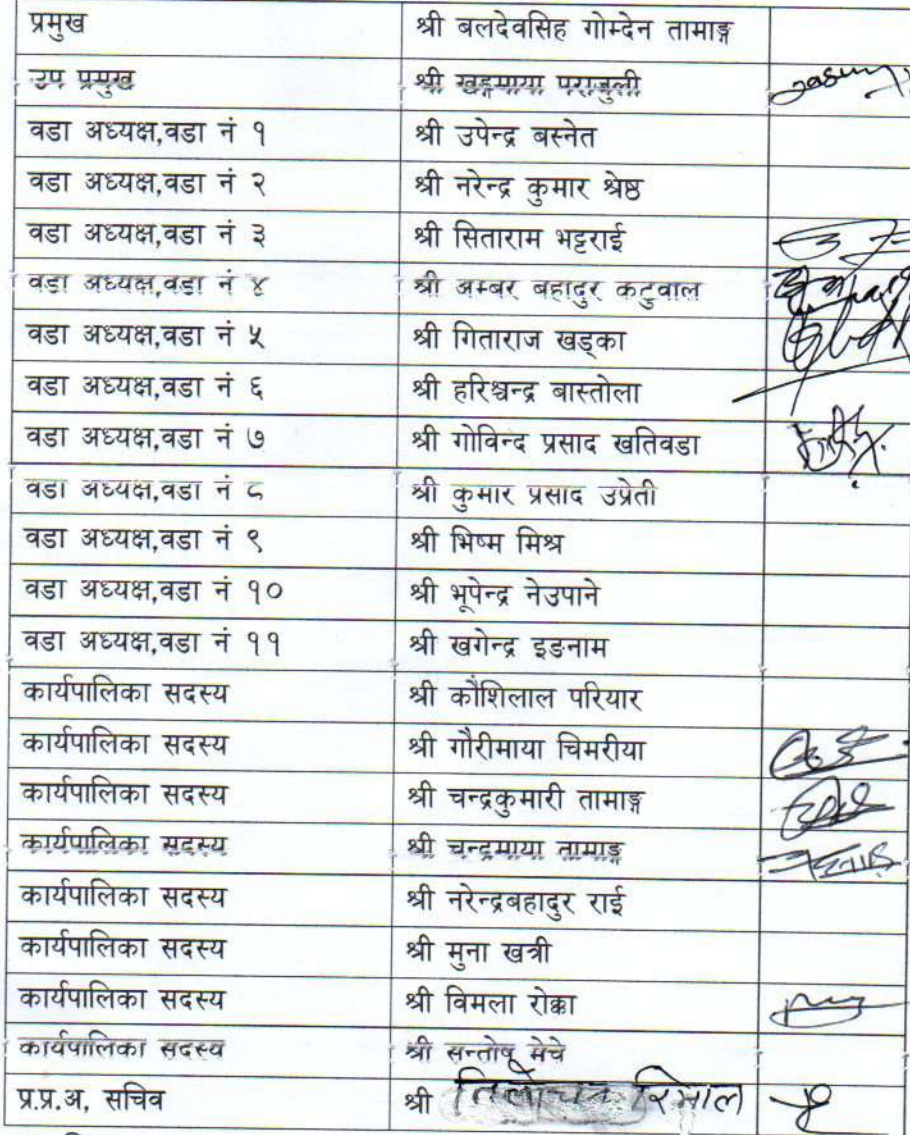 प्रमुख श्री बलदेवसिह गोम्देन तामाङ्ग
उप प्रमुख श्री खड्गमाया पराजुली
वडा अध्यक्ष,वडा नं १ श्री उपेन्द्र बस्नेत
वडा अध्यक्ष,वडा नं २ श्री नरेन्द्र कुमार श्रेष्ठ
वडा अध्यक्ष,वडा नं ३ श्री सिताराम भट्टराई
वडा अध्यक्ष,वडा नं ४ श्री अम्बर बहादुर कटुवाल
वडा अध्यक्ष,वडा नं ५ श्री गिताराज खड्का
वडा अध्यक्ष,वडा नं ६ श्री हरिश्चन्द्र बास्तोला
वडा अध्यक्ष,वडा नं ७ श्री गोविन्द प्रसाद खतिवडा
वडा अध्यक्ष,वडा नं ८ श्री कुमार प्रसाद उप्रेती
वडा अध्यक्ष,वडा नं ९ श्री भिष्म मिश्र
वडा अध्यक्ष,वडा नं १० श्री भूपेन्द्र नेउपाने
वडा अध्यक्ष,वडा नं ११ श्री खगेन्द्र इङनाम
कार्यपालिका सदस्य श्री कौशिलाल परियार
कार्यपालिका सदस्य श्री गौरीमाया चिमरीया
कार्यपालिका सदस्य श्री चन्द्रकुमारी तामाङ्ग
कार्यपालिका सदस्य श्री चन्द्रमाया तामाङ्ग
कार्यपालिका सदस्य श्री नरेन्द्रबहादुर राई
कार्यपालिका सदस्य श्री मुना खत्री
कार्यपालिका सदस्य श्री विमला रोक्का
कार्यपालिका सदस्य श्री सन्तोष मेचे
प्र.प्र.अ, सचिव श्री रिमाल